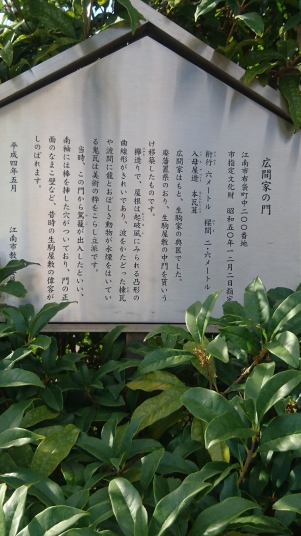 広間家の門
江南市布袋町中二〇〇番地
市指定文化財 昭和五〇年一一月二日指定
桁行 六メートル 梁間 二・六メートル
入母屋造 本瓦葺
広間家はもと、生駒家の典医でした。
廃藩置県のおり、生駒屋敷の中門を貰いう
け移築したものです。
欅造りで、屋根は起破風にみられる凸形の
曲線形がきれいであり、波をかたどった棟瓦
や波間に龍とおぼしき動物が水煙をはいてい
る鬼瓦は美術の粋をこらし立派です。
当時、この門から駕籠が出入したといい、
南袖には棒を挿した穴がついており、門の正
面のなまこ壁など、昔時の生駒屋敷の偉容が
しのばれます。
平成四年五月 江南市教